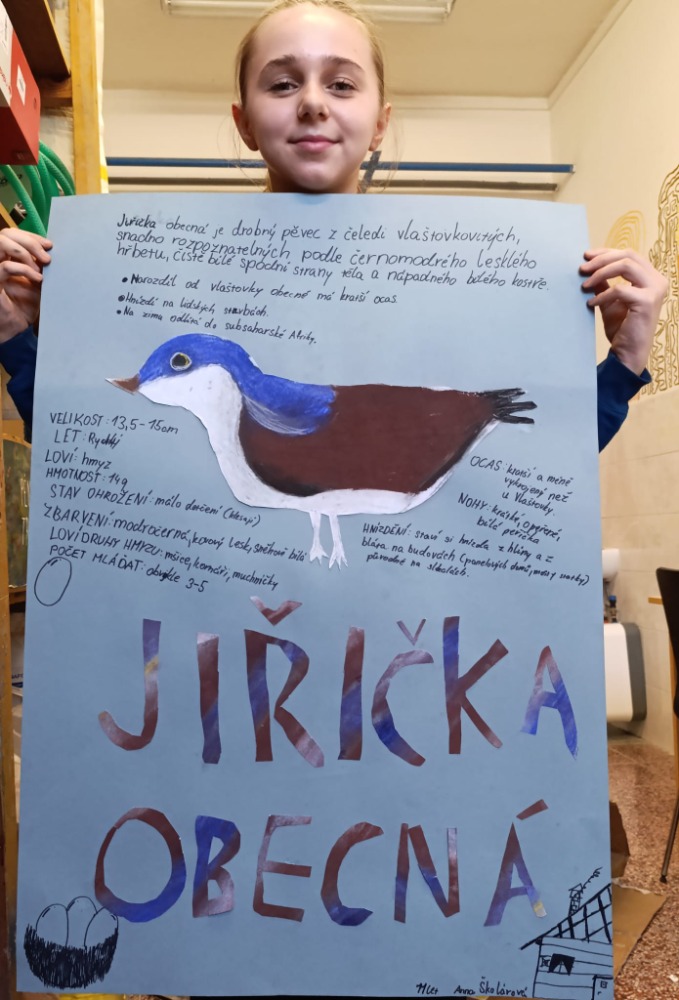 Jiřička obecná je drobný pěvec z čeledi vlaštovkovitých,
snadno rozpoznatelných podle černomodrého lesklého
hřbetu, čistě bílé spodní strany těla a nápadného bílého kostřce.
• Narozdíl od vlaštovky obecné má kratší ocas.
• Hnízdí na lidských stavbách.
• Na zimu odlétá do subsaharské Afriky.
VELIKOST: 13,5-15cm
LET: Rychlý
LOVÍ: hmyz
HMOTNOST: 14g
STAV OHROŽENÍ: málo dotčení (klesají)
ZBARVENÍ: modročerná, kovový lesk, sněhově bílá
LOVÍ DRUHY HMYZU: mšice, komáři, muchničky
POČET MLÁĎAT: obvykle 3-5
OCAS: kratší a méně
vykrojený než
u vlaštovky.
NOHY: krátké, opeřené,
bílé peříčka
HNÍZDĚNÍ: staví si hnízda z hlíny a z
bláta na budovách (panelových domů, mosty, stavby)
původně na skalách.
JIŘIČKA
OBECNÁ
11let Anna Školárová